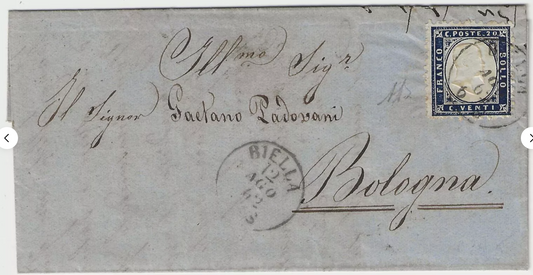 C. POSTE. 20.
FRANCO
BOLLO
C. VENTI
Ill.mo Sigr
Il Signor Gaetano Padovani
BIELLA
12
AGO
62
Bologna.